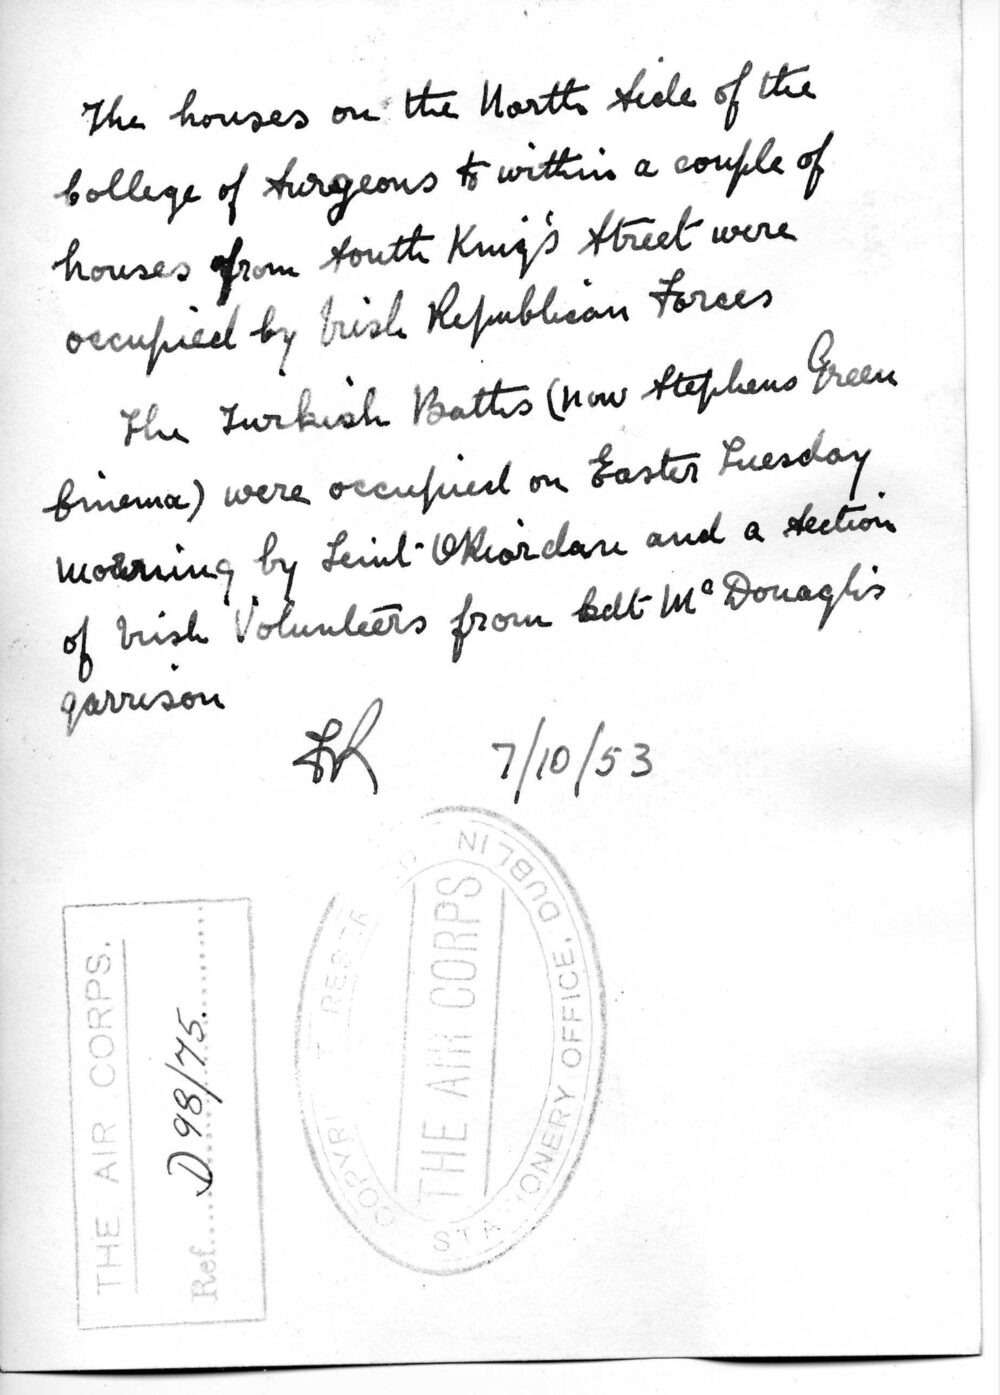 The houses on the North side of the
College of Surgeons to within a couple of
houses from South King's Street were
occupied by Irish Republican Forces
The Turkish Baths (now Stephens Green
Cinema) were occupied on Easter Tuesday
morning by Lieut O'Riordan and a section
of Irish Volunteers from Cdt McDonagh's
garrison
7/10/53
THE AIR CORPS.
Ref. D 98/75
STATIONERY OFFICE, DUBLIN
THE AIR CORPS